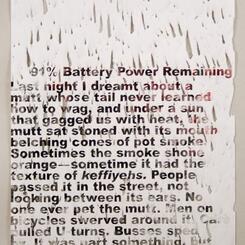 91% Battery Power Remaining
Last night I dreamt about a
mutt whose tail never learned
how to wag, and under a sun
that gagged us with heat, the
mutt sat stoned with its mouth
belching cones of pot smoke.
Sometimes the smoke shone
orange—sometime it had the
texture of keffiyehs. People
passed it in the street, not
looking between its ears. No
one ever pet the mutt. Men on
bicycles swerved around it. Ca
pulled U turns. Busses spe
It was part something. Bu